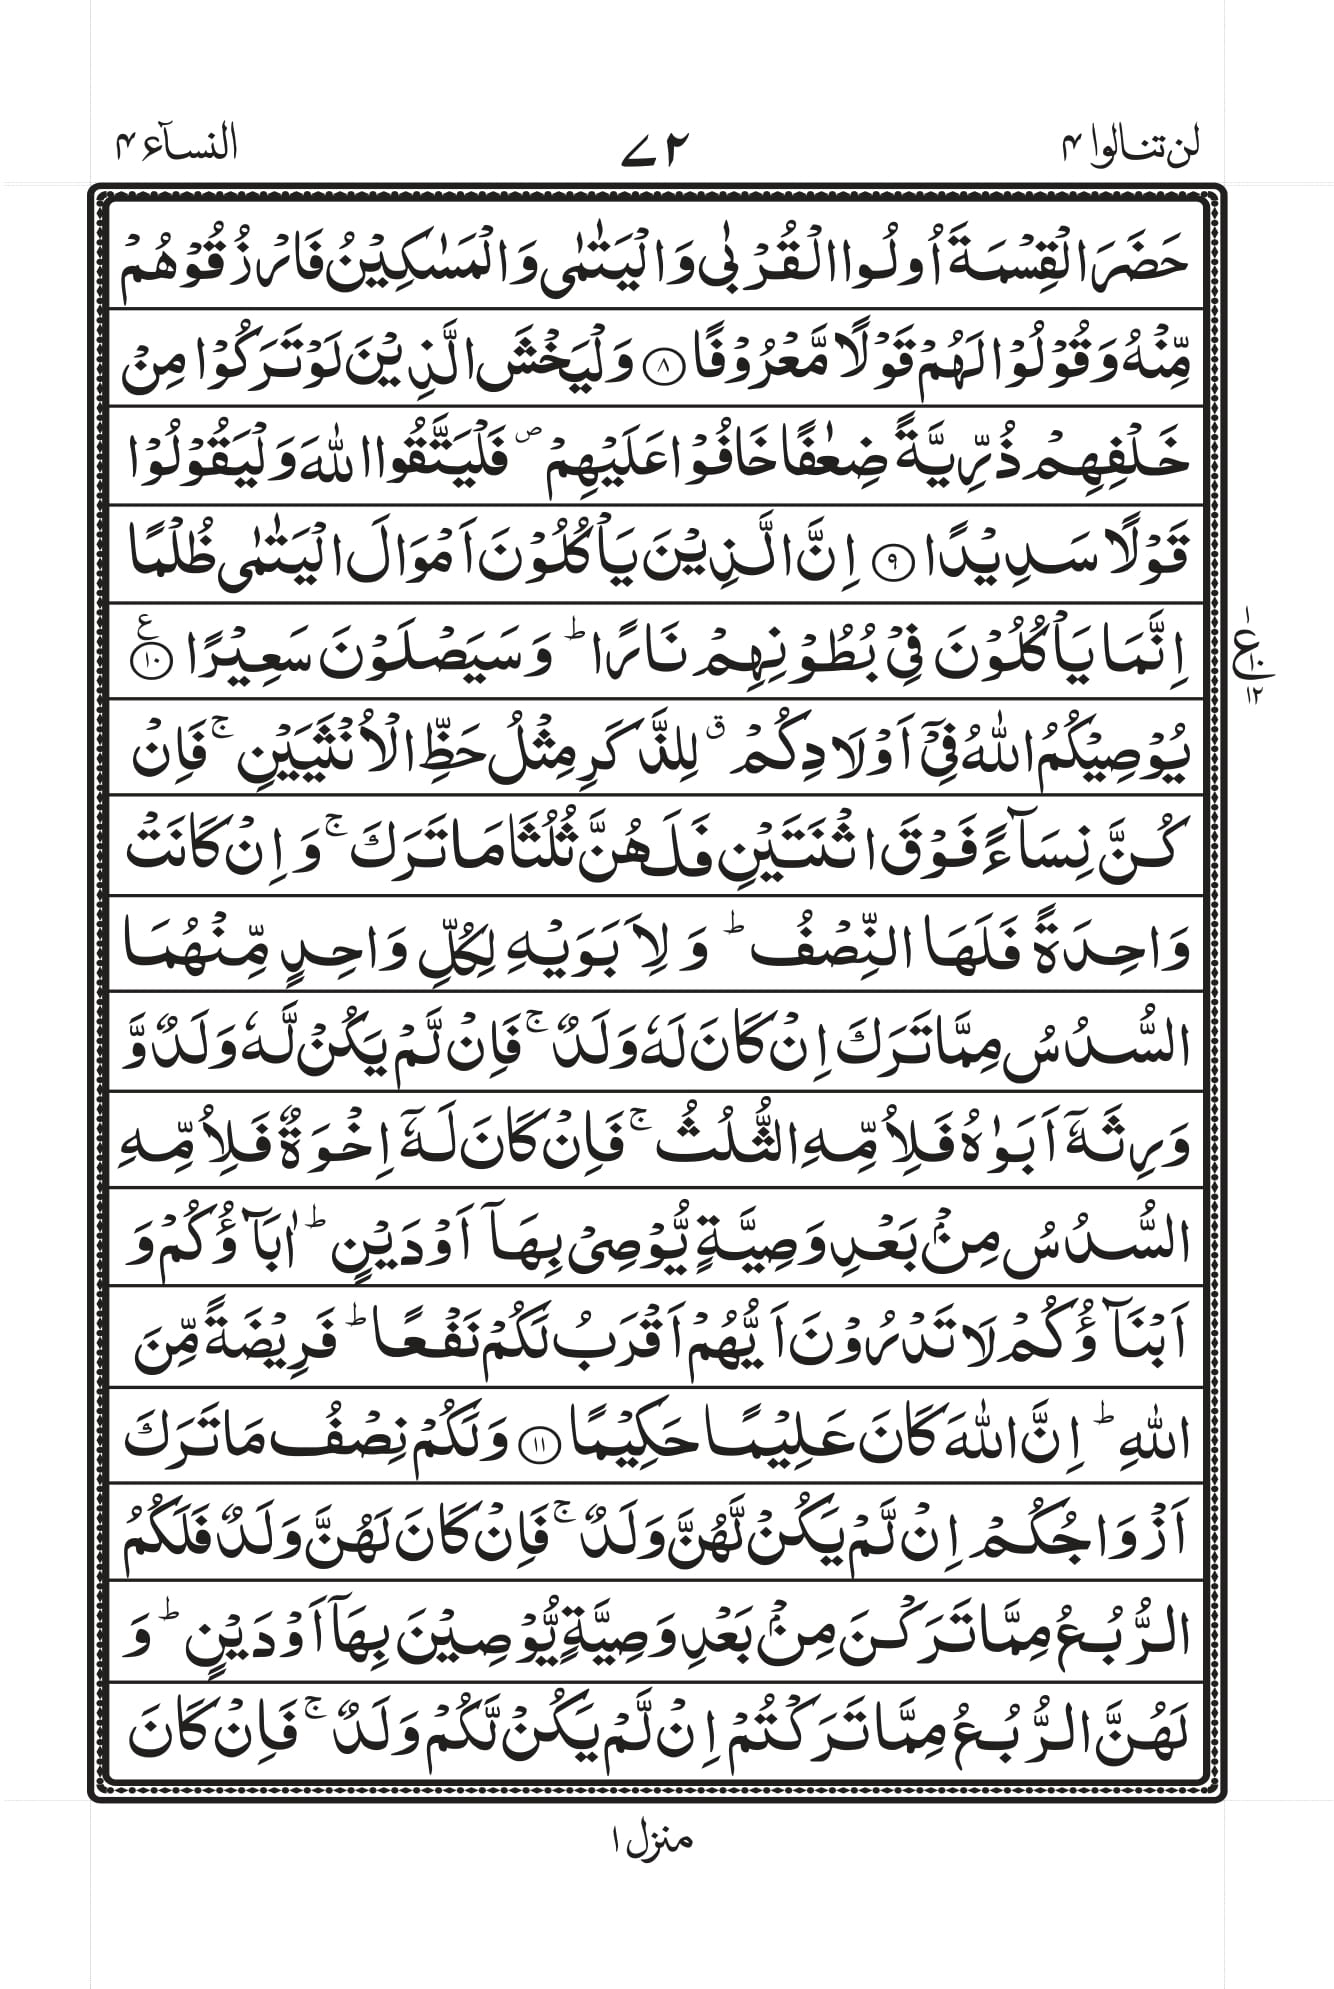 لن تنالوا ۴
۷۲
النسآء ۴
حَضَرَ الْقِسْمَةَ اُولُوا الْقُرْبٰى وَالْيَتٰمٰى وَالْمَسٰكِيْنُ فَارْزُقُوْهُمْ
مِّنْهُ وَقُوْلُوْا لَهُمْ قَوْلًا مَّعْرُوْفًا ۝۸ وَلْيَخْشَ الَّذِيْنَ لَوْ تَرَكُوْا مِنْ
خَلْفِهِمْ ذُرِّيَّةً ضِعٰفًا خَافُوْا عَلَيْهِمْ ۪ فَلْيَتَّقُوا اللّٰهَ وَلْيَقُوْلُوْا
قَوْلًا سَدِيْدًا ۝۹ اِنَّ الَّذِيْنَ يَاْكُلُوْنَ اَمْوَالَ الْيَتٰمٰى ظُلْمًا
اِنَّمَا يَاْكُلُوْنَ فِيْ بُطُوْنِهِمْ نَارًا ؕ وَسَيَصْلَوْنَ سَعِيْرًا ۝۱۰ ع
۱
ع ۱۰
۱۲
يُوْصِيْكُمُ اللّٰهُ فِيْٓ اَوْلَادِكُمْ ۗ لِلذَّكَرِ مِثْلُ حَظِّ الْاُنْثَيَيْنِ ۚ فَاِنْ
كُنَّ نِسَآءً فَوْقَ اثْنَتَيْنِ فَلَهُنَّ ثُلُثَا مَا تَرَكَ ۚ وَاِنْ كَانَتْ
وَاحِدَةً فَلَهَا النِّصْفُ ؕ وَلِاَبَوَيْهِ لِكُلِّ وَاحِدٍ مِّنْهُمَا
السُّدُسُ مِمَّا تَرَكَ اِنْ كَانَ لَهٗ وَلَدٌ ۚ فَاِنْ لَّمْ يَكُنْ لَّهٗ وَلَدٌ وَّ
وَرِثَهٗٓ اَبَوٰهُ فَلِاُمِّهِ الثُّلُثُ ۚ فَاِنْ كَانَ لَهٗٓ اِخْوَةٌ فَلِاُمِّهِ
السُّدُسُ مِنْۢ بَعْدِ وَصِيَّةٍ يُّوْصِيْ بِهَآ اَوْ دَيْنٍ ؕ اٰبَآؤُكُمْ وَ
اَبْنَآؤُكُمْ لَا تَدْرُوْنَ اَيُّهُمْ اَقْرَبُ لَكُمْ نَفْعًا ؕ فَرِيْضَةً مِّنَ
اللّٰهِ ؕ اِنَّ اللّٰهَ كَانَ عَلِيْمًا حَكِيْمًا ۝۱۱ وَلَكُمْ نِصْفُ مَا تَرَكَ
اَزْوَاجُكُمْ اِنْ لَّمْ يَكُنْ لَّهُنَّ وَلَدٌ ۚ فَاِنْ كَانَ لَهُنَّ وَلَدٌ فَلَكُمُ
الرُّبُعُ مِمَّا تَرَكْنَ مِنْۢ بَعْدِ وَصِيَّةٍ يُّوْصِيْنَ بِهَآ اَوْ دَيْنٍ ؕ وَ
لَهُنَّ الرُّبُعُ مِمَّا تَرَكْتُمْ اِنْ لَّمْ يَكُنْ لَّكُمْ وَلَدٌ ۚ فَاِنْ كَانَ
منزل ۱